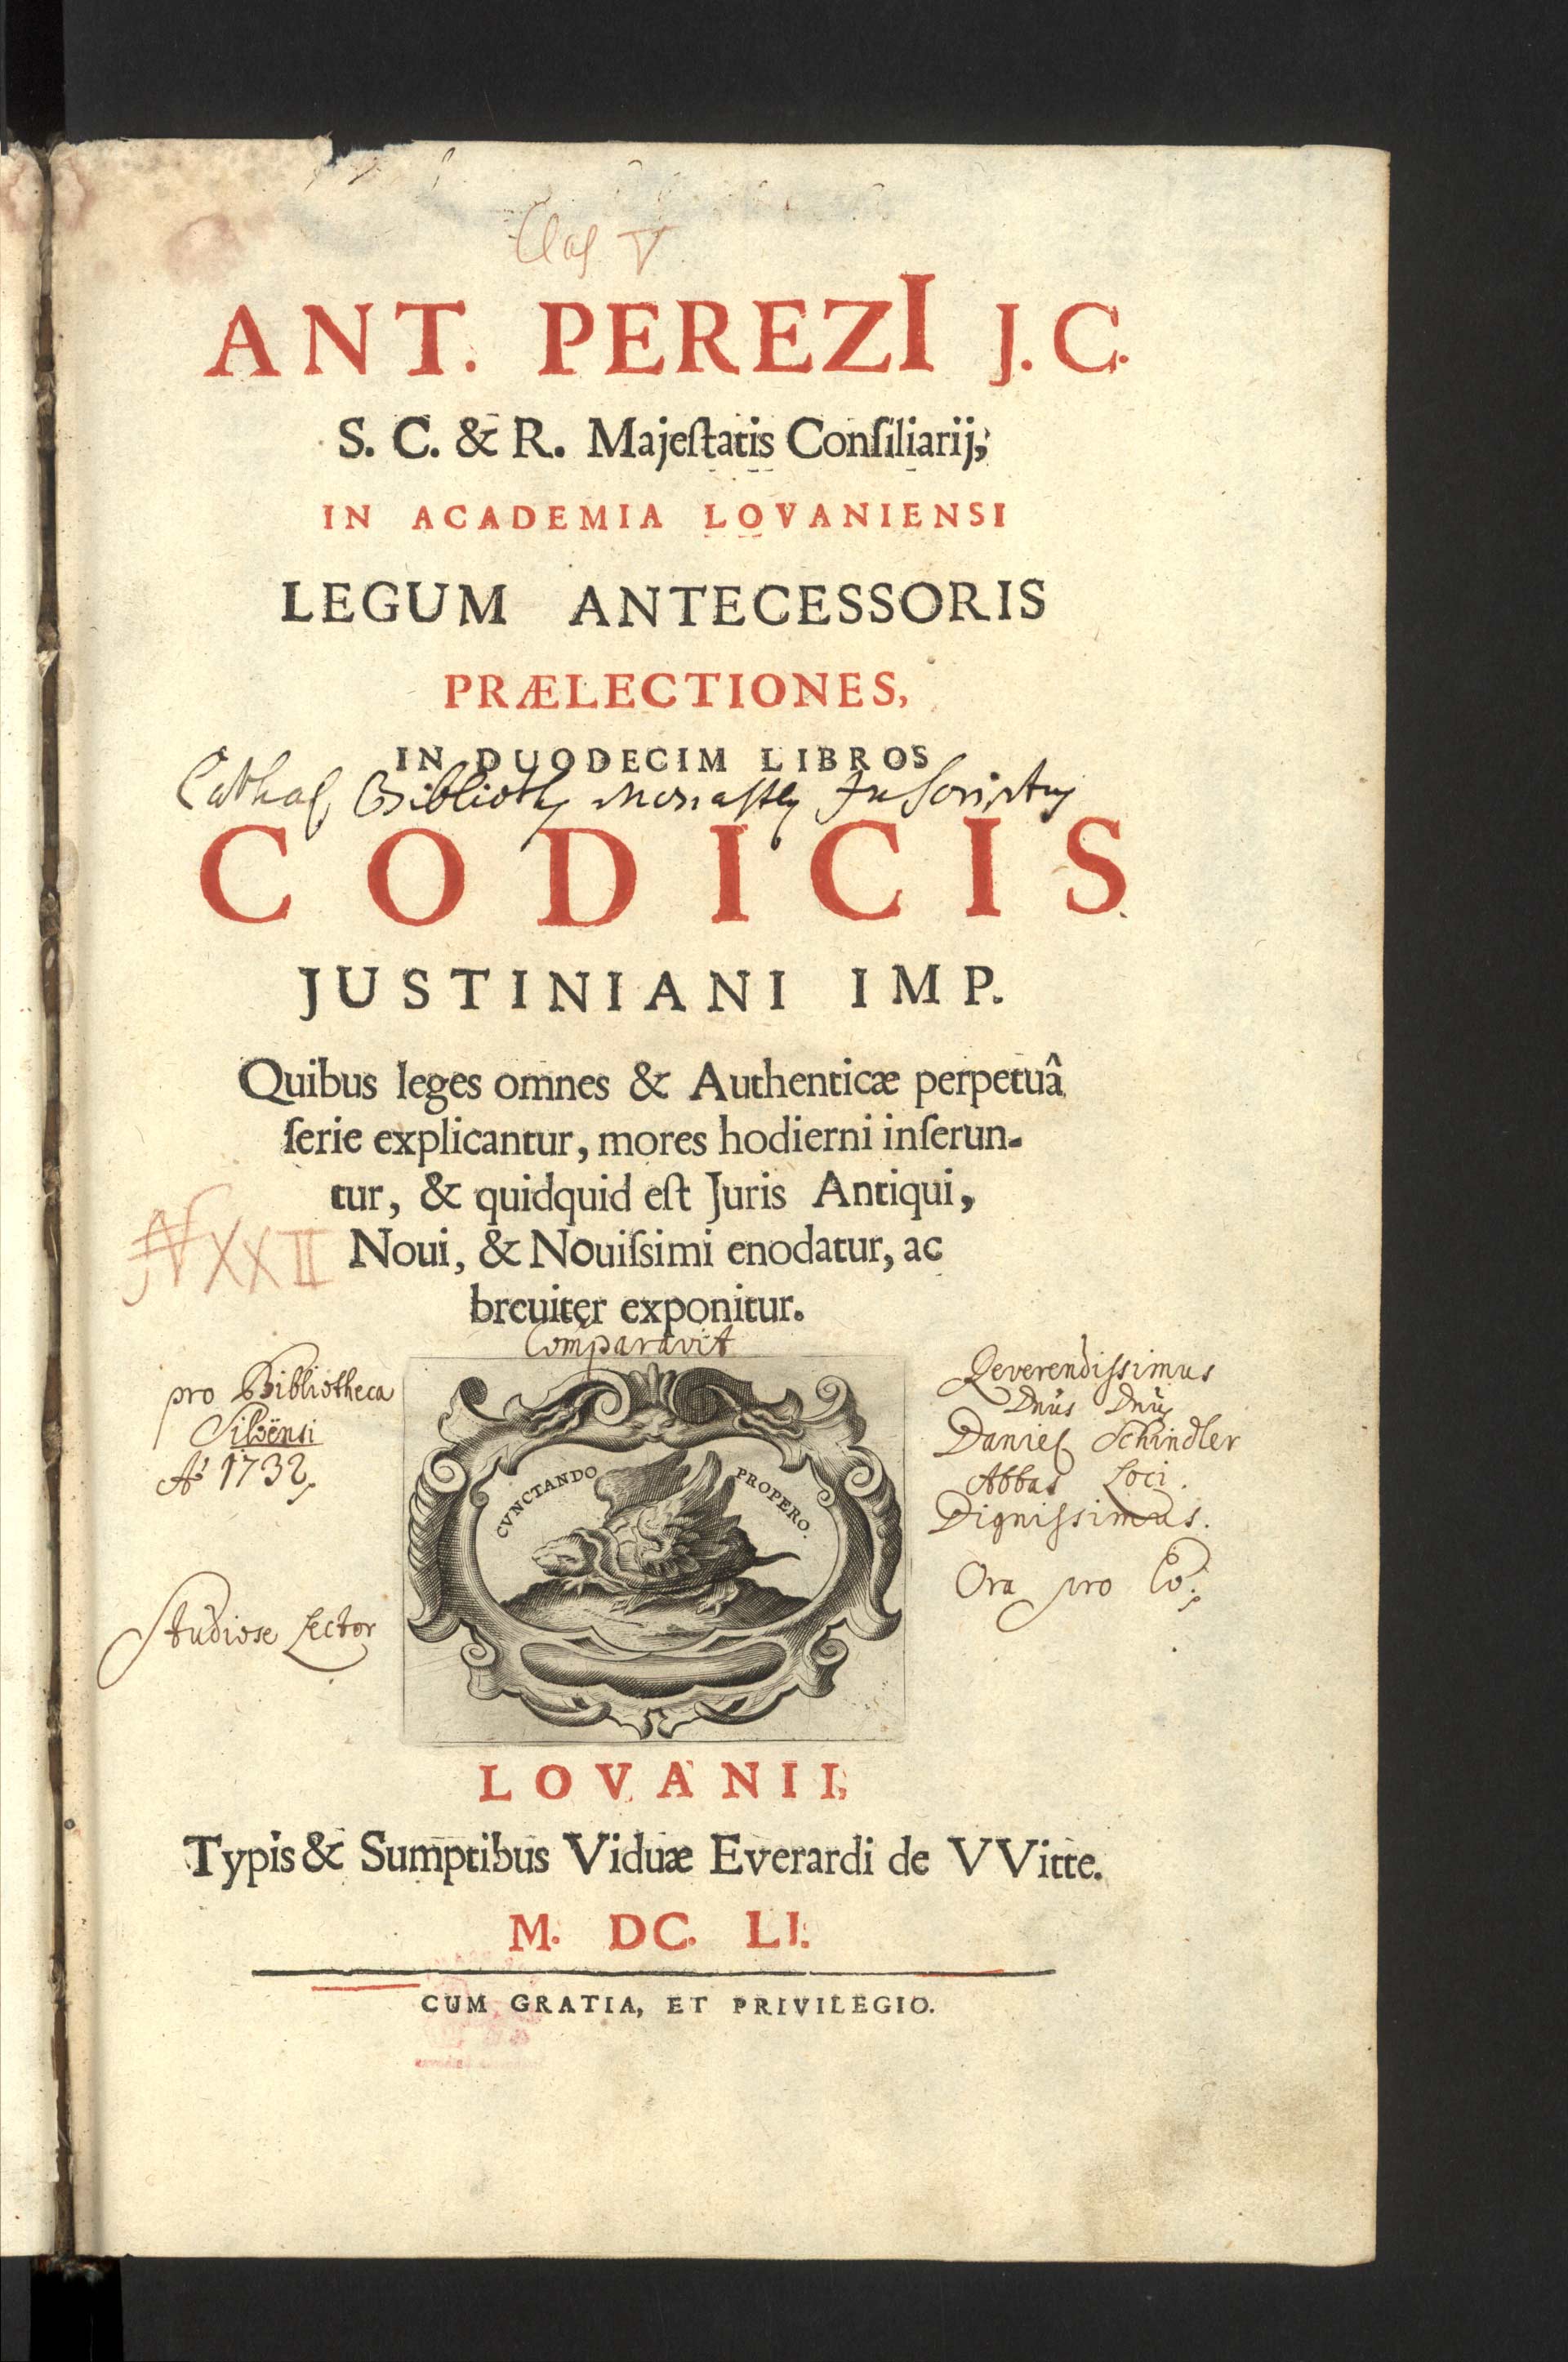 Clas V
ANT. PEREZI J.C.
S. C. & R. Majeſtatis Conſiliarij,
IN ACADEMIA LOVANIENSI
LEGUM ANTECESSORIS
PRÆLECTIONES,
IN DUODECIM LIBROS
Biblioth Monast Inscriptus
CODICIS
JUSTINIANI IMP.
Quibus leges omnes & Authenticæ perpetuâ
ſerie explicantur, mores hodierni inſerun-
tur, & quidquid eſt Juris Antiqui,
XXII
Noui, & Nouiſsimi enodatur, ac
breuiter exponitur.
Comparavit
pro Bibliotheca
Silöensi
Aō 1732
Reverendiſsimus
Dnús Dnús
Daniel Schindler
Abbas Loci.
Digniſsimus.
Ora pro Eo.
Studiose Lector
CVNCTANDO PROPERO.
LOVANII,
Typis & Sumptibus Viduæ Everardi de VVitte.
M. DC. LI.
CUM GRATIA, ET PRIVILEGIO.